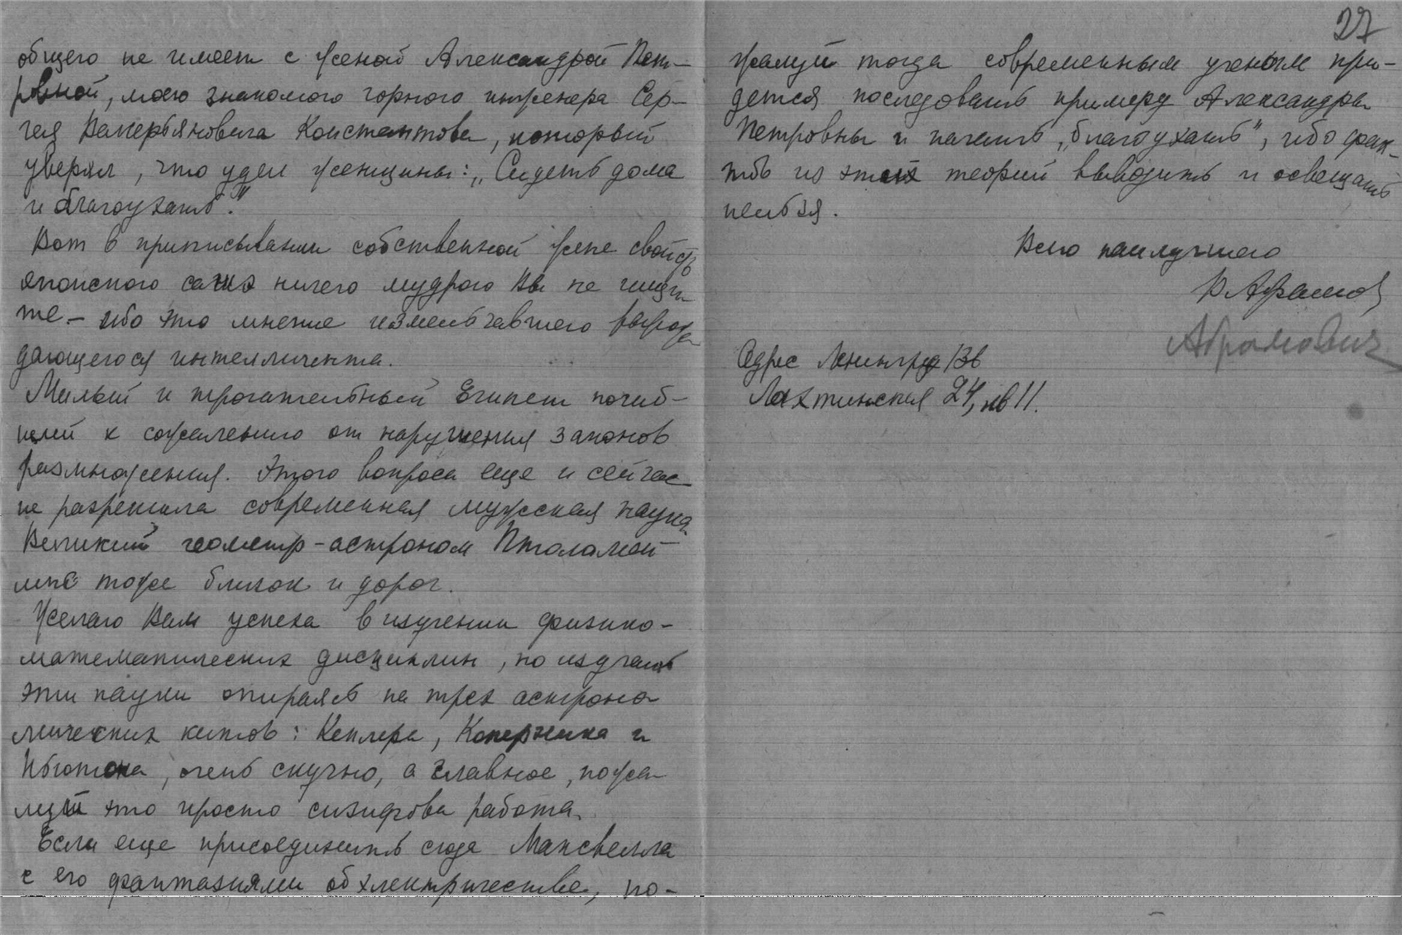 общего не имеет с женой Александрой Пет-
ровной, моего знакомого горного инженера Сер-
гея Валерьяновича Константова, который
уверял, что удел женщины: „Сидеть дома
и благоухать".
Вот в приписывании собственной жене свойств
японского ничего мудрого Вы не ищи-
те – ибо это мнение измельчавшего вырож-
дающегося интеллигента.
Милый и трогательный Египет погиб-
ший к сожалению от нарушения законов
размножения. Этого вопроса еще и сейчас
не разрешила современная мужская наука.
Великий геометр-астроном Птоломей
мне тоже близок и дорог.
Желаю Вам успеха в изучении физико-
математических дисциплин, но изучать
эти науки опираясь на трех астроно
мических китов: Кеплера, Коперника и
Ньютона, очень скучно, а главное, пожа-
луй это просто сизифова работа.
Если еще присоединить сюда Максвелла
с его фантазиями об электричестве, по-
27
жалуй тогда современным ученым при-
дется последовать примеру Александры
Петровны и начать „благоухать", ибо фак-
тов из этих теорий выводить и освещать
нельзя.
Всего наилучшего
Абрамович
Адрес Ленинград 136
Лахтинская 24, кв 11.